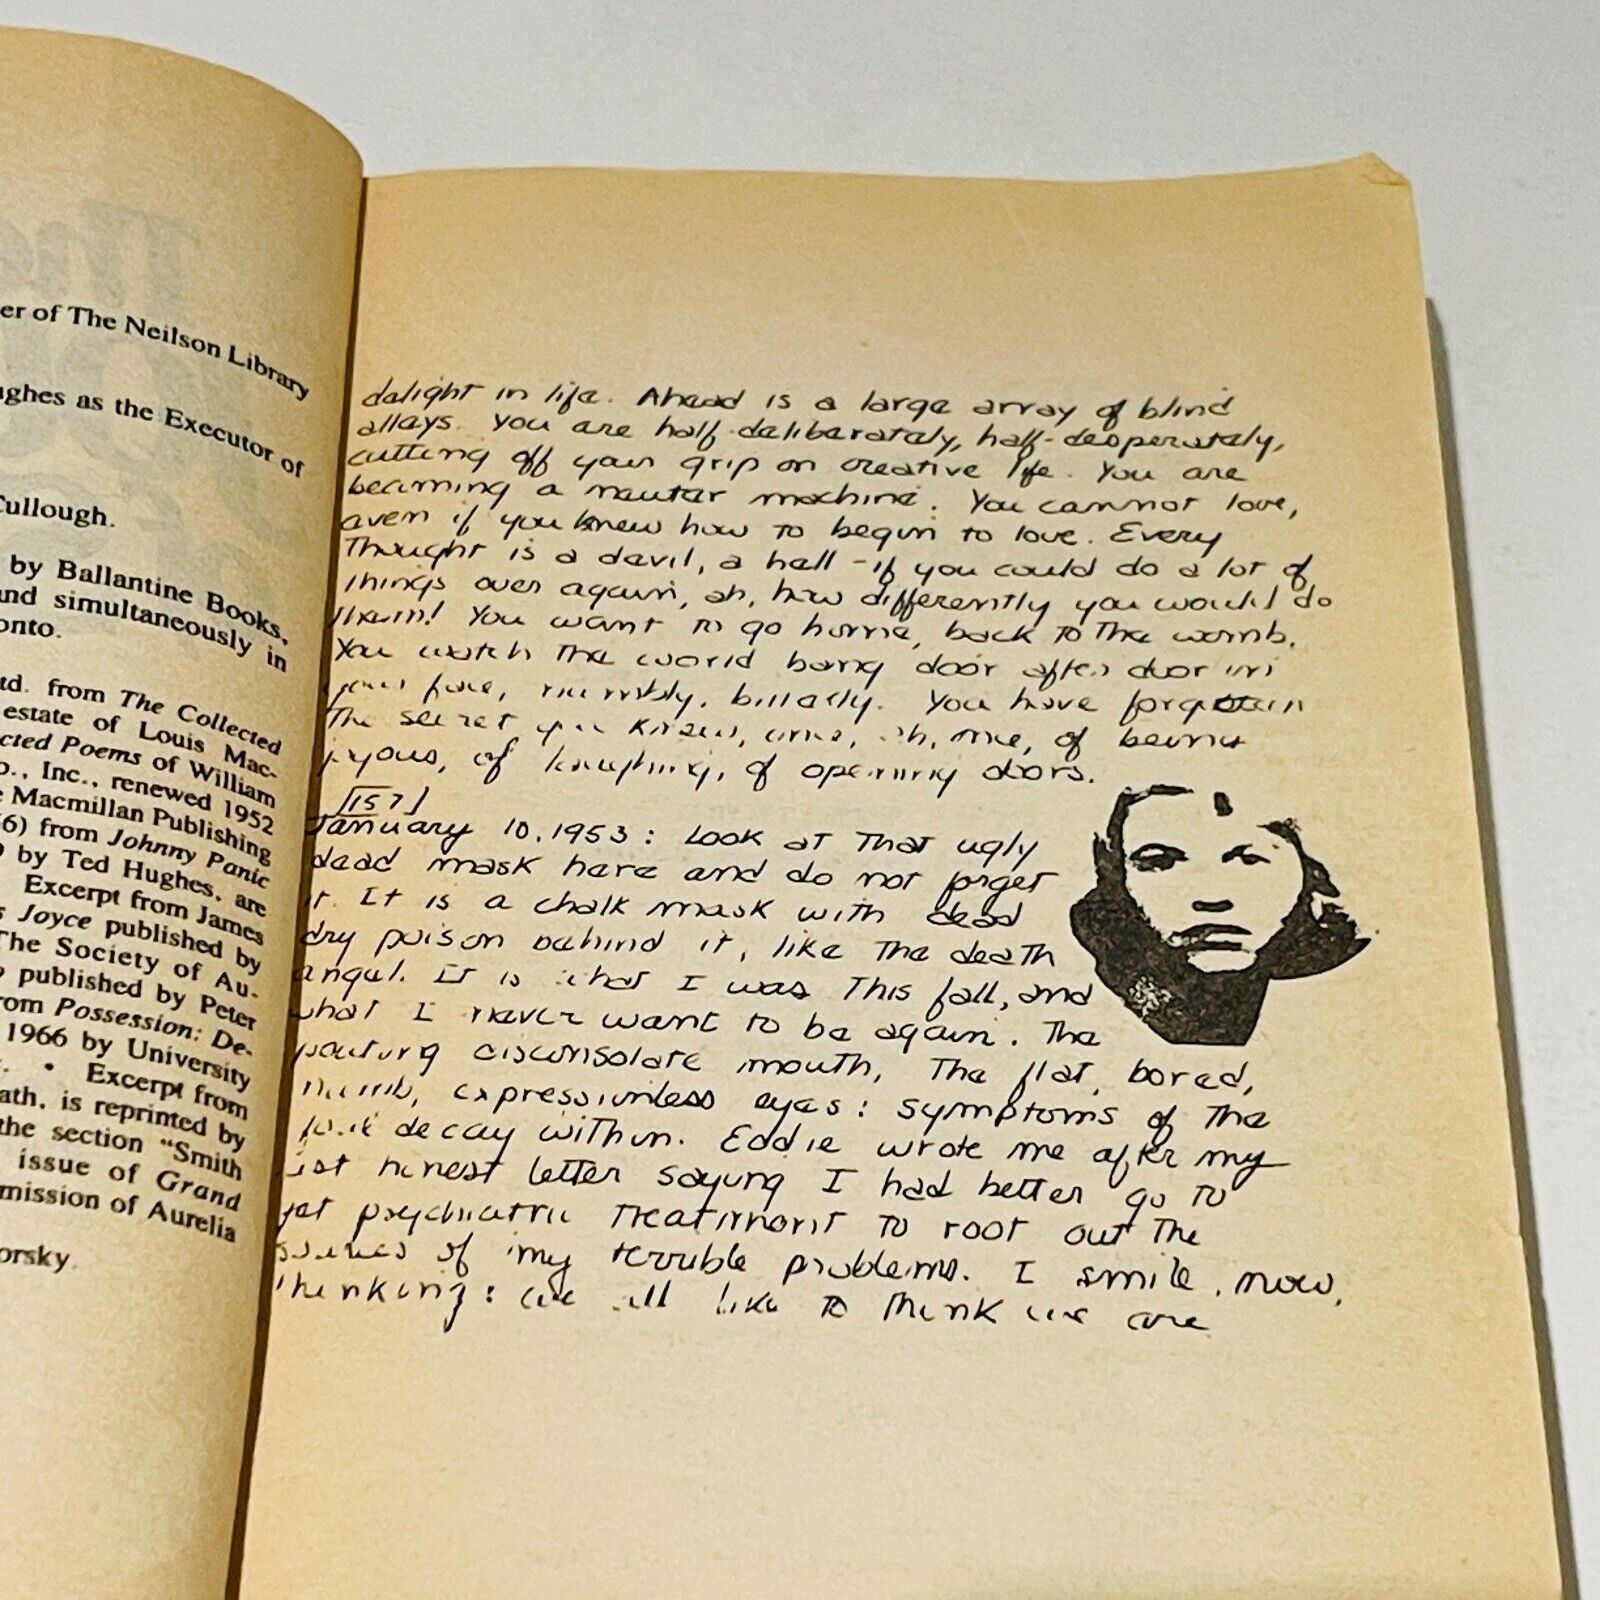 er of The Neilson Library
ughes as the Executor of
Cullough.
by Ballantine Books,
and simultaneously in
onto.
td. from The Collected
estate of Louis Mac-
cted Poems of William
o., Inc., renewed 1952
e Macmillan Publishing
56) from Johnny Panic
by Ted Hughes, are
Excerpt from James
s Joyce published by
The Society of Au-
o published by Peter
rom Possession: De-
1966 by University
. • Excerpt from
ath, is reprinted by
the section "Smith
issue of Grand
mission of Aurelia
orsky.
delight in life. Ahead is a large array of blind
alleys. You are half-deliberately, half-desperately,
cutting off your grip on creative life. You are
becoming a neuter machine. You cannot love,
even if you knew how to begin to love. Every
Thought is a devil, a hell - if you could do a lot of
things over again, ah, how differently you would do
them! You want to go home, back to the womb.
You watch the world bang door after door in
your face, numbly, bitterly. You have forgotten
The secret you knew, once, ah, once, of being
joyous, of laughing, of opening doors.
157
January 10, 1953: Look at that ugly
dead mask here and do not forget
it. It is a chalk mask with dead
dry poison behind it, like the death
angel. It is what I was this fall, and
what I never want to be again. The
pouting disconsolate mouth, The flat, bored,
numb, expressionless eyes: symptoms of the
foul decay within. Eddie wrote me after my
last honest letter saying I had better go to
get psychiatric treatment to root out the
sources of my terrible problems. I smile, now,
thinking: we all like to think we are